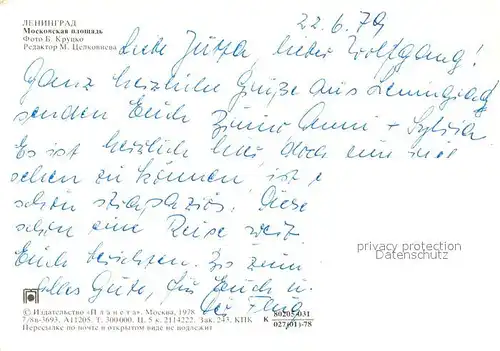 ЛЕНИНГРАД
Московская площадь
Фото Б. Круцко
Редактор М. Целковнева
22.6.79
Liebe Jutta, lieber Wolfgang!
Ganz herzliche Grüße aus Leningrad
senden Euch Anni + Sylvia
Es ist herrlich hier, doch eine
sehen zu können, ist
schön strapaziös. Diese
schon eine Reise wert
Euch berichten. Bis zum
alles Gute, für Euch u.
privacy protection
Datenschutz
© Издательство «Планета», Москва, 1978
7/8в-3693. А11205. Т. 300000. Ц. 5 к. 2114222. Зак. 243. КПК
К 80205-031
027(01)-78
Пересылке по почте в открытом виде не подлежит